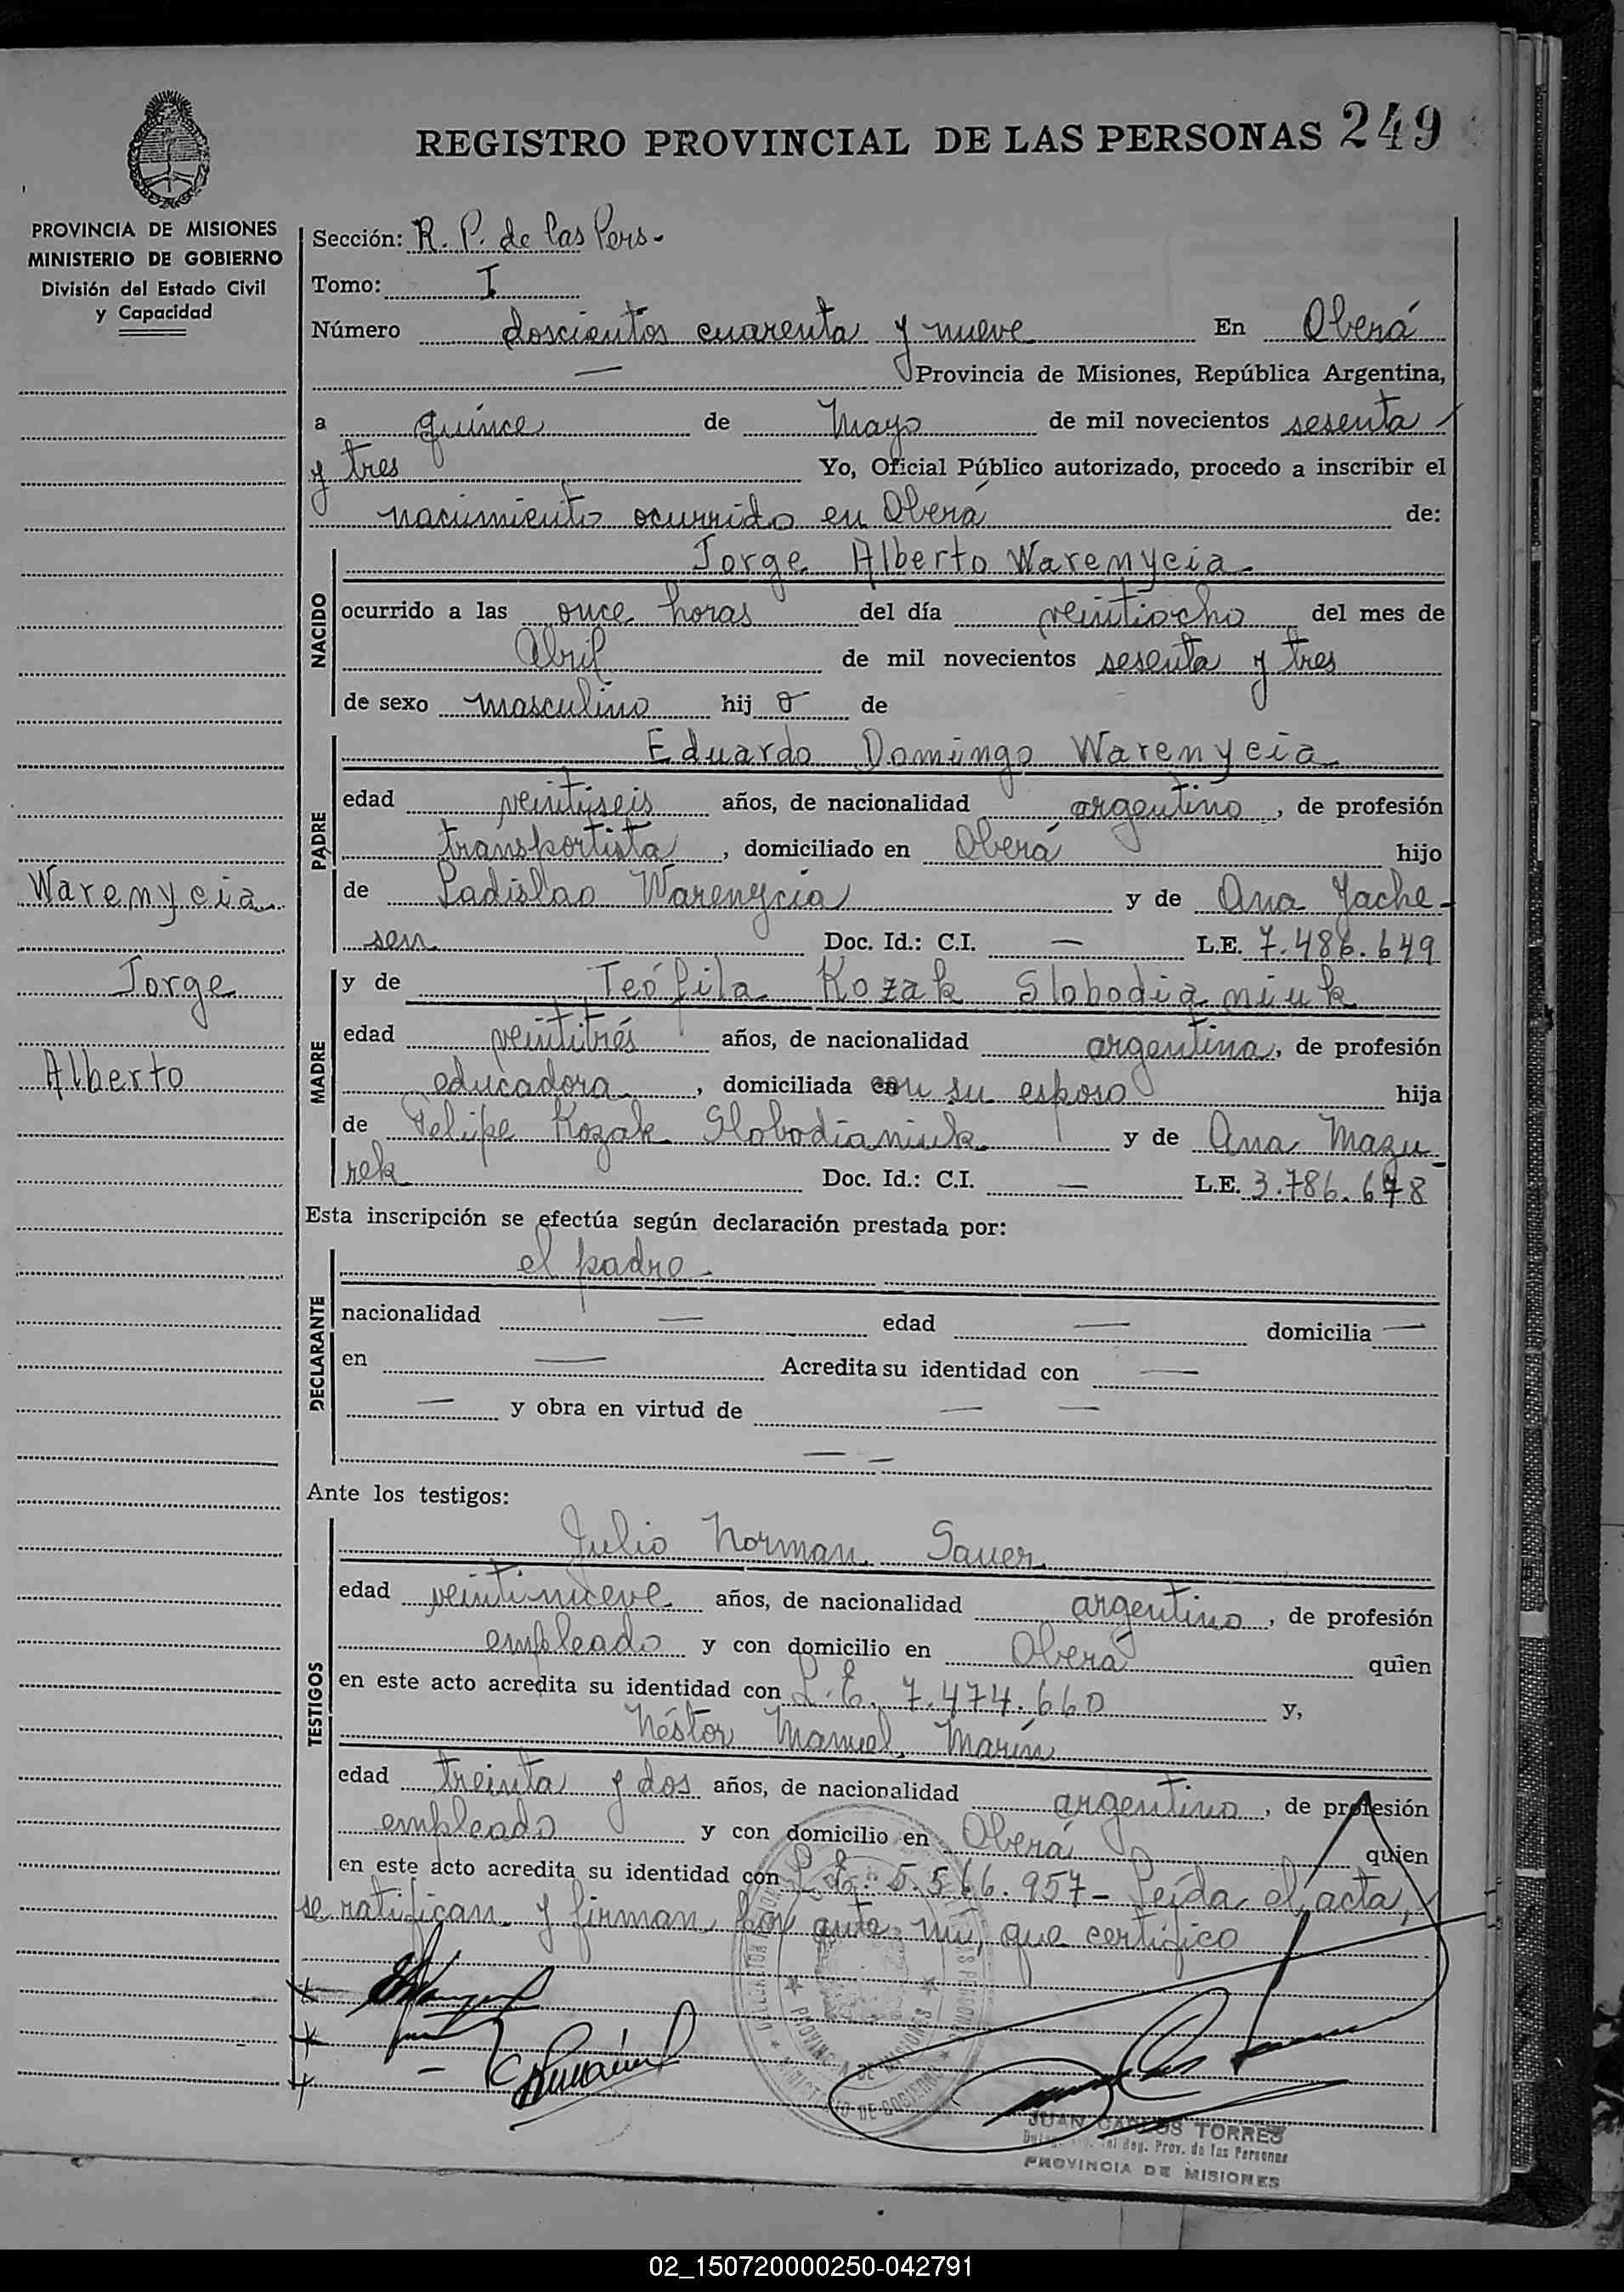 REGISTRO PROVINCIAL DE LAS PERSONAS 249
PROVINCIA DE MISIONES
MINISTERIO DE GOBIERNO
División del Estado Civil
y Capacidad
Sección: R. P. de las Pers-
Tomo: I
Número doscientos cuarenta y nueve En Oberá
— Provincia de Misiones, República Argentina,
a quince de Mayo de mil novecientos sesenta
y tres Yo, Oficial Público autorizado, procedo a inscribir el
nacimiento ocurrido en Oberá de:
NACIDO
Jorge Alberto Warenycia
ocurrido a las once horas del día veintiocho del mes de
Abril de mil novecientos sesenta y tres
de sexo masculino hij o de
PADRE
Eduardo Domingo Warenycia
edad veintiseis años, de nacionalidad argentino, de profesión
transportista, domiciliado en Oberá hijo
de Ladislao Warenycia y de Ana Jache-
sen Doc. Id.: C.I. — L.E. 7.486.649
Warenycia
Jorge
Alberto
MADRE
y de Teófila Kozak Slobodianiuk
edad veintitrés años, de nacionalidad argentina, de profesión
educadora, domiciliada con su esposo hija
de Felipe Kozak Slobodianiuk y de Ana Mazu-
rek Doc. Id.: C.I. — L.E. 3.786.678
Esta inscripción se efectúa según declaración prestada por:
DECLARANTE
el padre
nacionalidad — edad — domicilia —
en — Acredita su identidad con —
— y obra en virtud de — —
— —
Ante los testigos:
TESTIGOS
Julio Norman Sauer
edad veintinueve años, de nacionalidad argentino, de profesión
empleado y con domicilio en Oberá quien
en este acto acredita su identidad con L.E. 7.474.660 y,
Néstor Manuel Marín
edad treinta y dos años, de nacionalidad argentino, de profesión
empleado y con domicilio en Oberá quien
en este acto acredita su identidad con L.E. 5.566.957- Leída el acta,
se ratifican y firman por ante mí, que certifico
PROVINCIA DE MISIONES
MINISTERIO DE GOBIERNO
JUAN CARLOS TORRES
Prov. de las Personas
PROVINCIA DE MISIONES
02_150720000250-042791